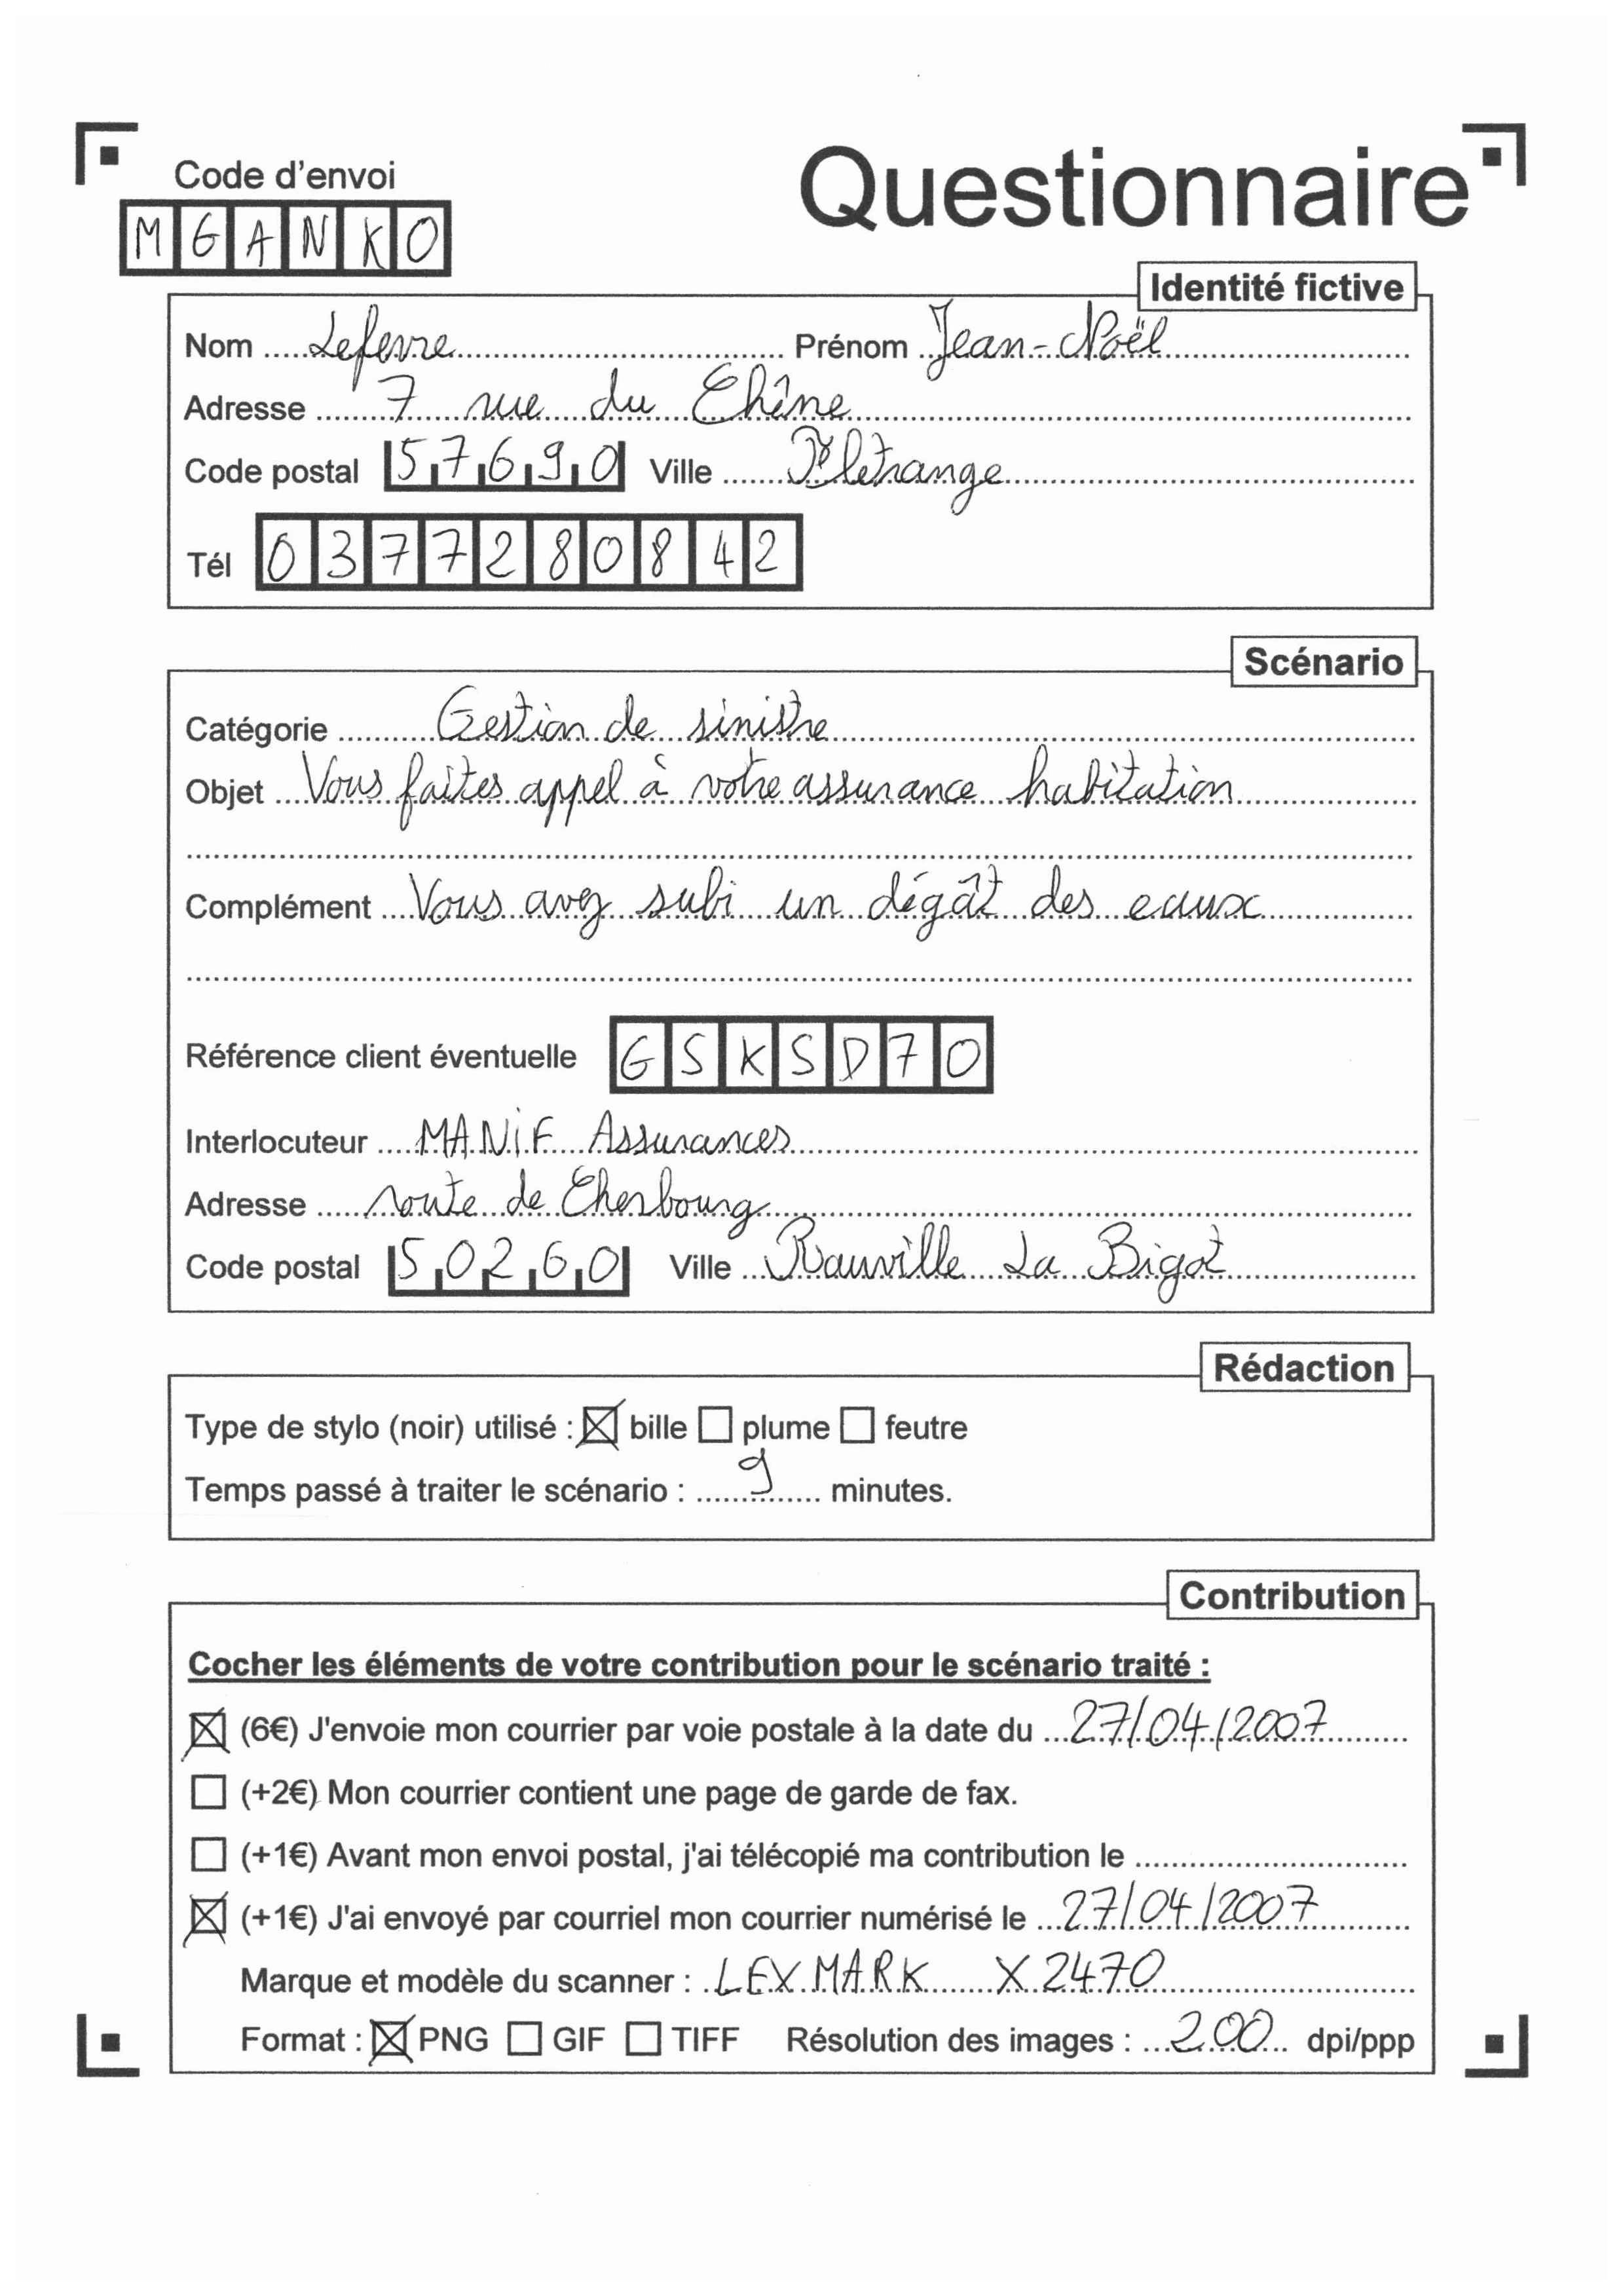 Code d'envoi
Questionnaire
MGANKO
Identité fictive
Nom Lefevre Prénom Jean-Noël
Adresse 7 rue du Chêne
Code postal 57690 Ville
Tél 0377280842
Scénario
Catégorie Gestion de sinistre
Objet Vous faites appel à votre assurance habitation
Complément Vous avez subi un dégât des eaux
Référence client éventuelle GSKSD70
Interlocuteur MANIF Assurances
Adresse route de Cherbourg
Code postal 50260 Ville Rauville La Bigot
Rédaction
Type de stylo (noir) utilisé : ☒ bille ☐ plume ☐ feutre
Temps passé à traiter le scénario : 9 minutes.
Contribution
Cocher les éléments de votre contribution pour le scénario traité :
☒ (6€) J'envoie mon courrier par voie postale à la date du 27/04/2007
☐ (+2€) Mon courrier contient une page de garde de fax.
☐ (+1€) Avant mon envoi postal, j'ai télécopié ma contribution le
☒ (+1€) J'ai envoyé par courriel mon courrier numérisé le 27/04/2007
Marque et modèle du scanner : LEXMARK X2470
Format : ☒ PNG ☐ GIF ☐ TIFF Résolution des images : 200 dpi/ppp